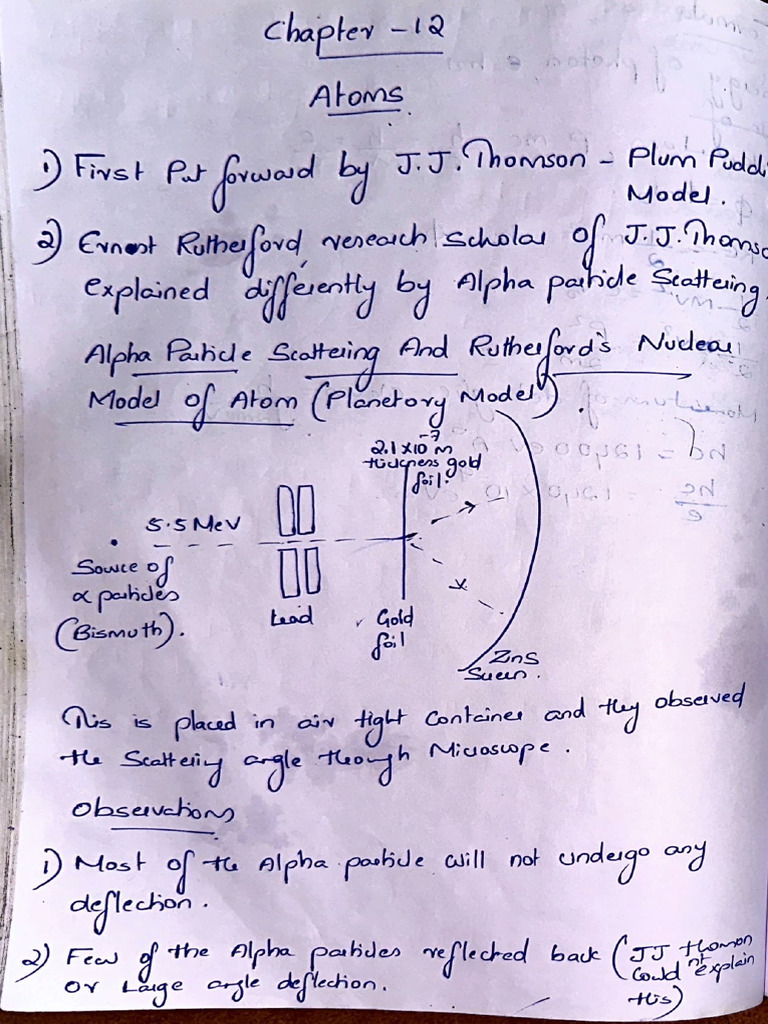 Chapter - 12
Atoms
1) First Put forward by J.J. Thomson - Plum Puddi
Model.
2) Ernest Rutherford, research scholar of J.J. Thomso
explained differently by Alpha particle Scattering.
Alpha Particle Scattering And Rutherford's Nuclear
Model of Atom (Planetory Model).
2.1 x 10⁻⁷ m
thickness gold
foil.
5.5 MeV
Source of
α particles
(Bismuth).
Lead
Gold
foil
ZnS
Screen.
This is placed in air tight Container and they observed
the Scattering angle through Microscope.
Observations
1) Most of the Alpha particle will not undergo any
deflection.
2) Few of the Alpha particles reflected back (JJ thomon
could n't explain
this)
or Large angle deflection.